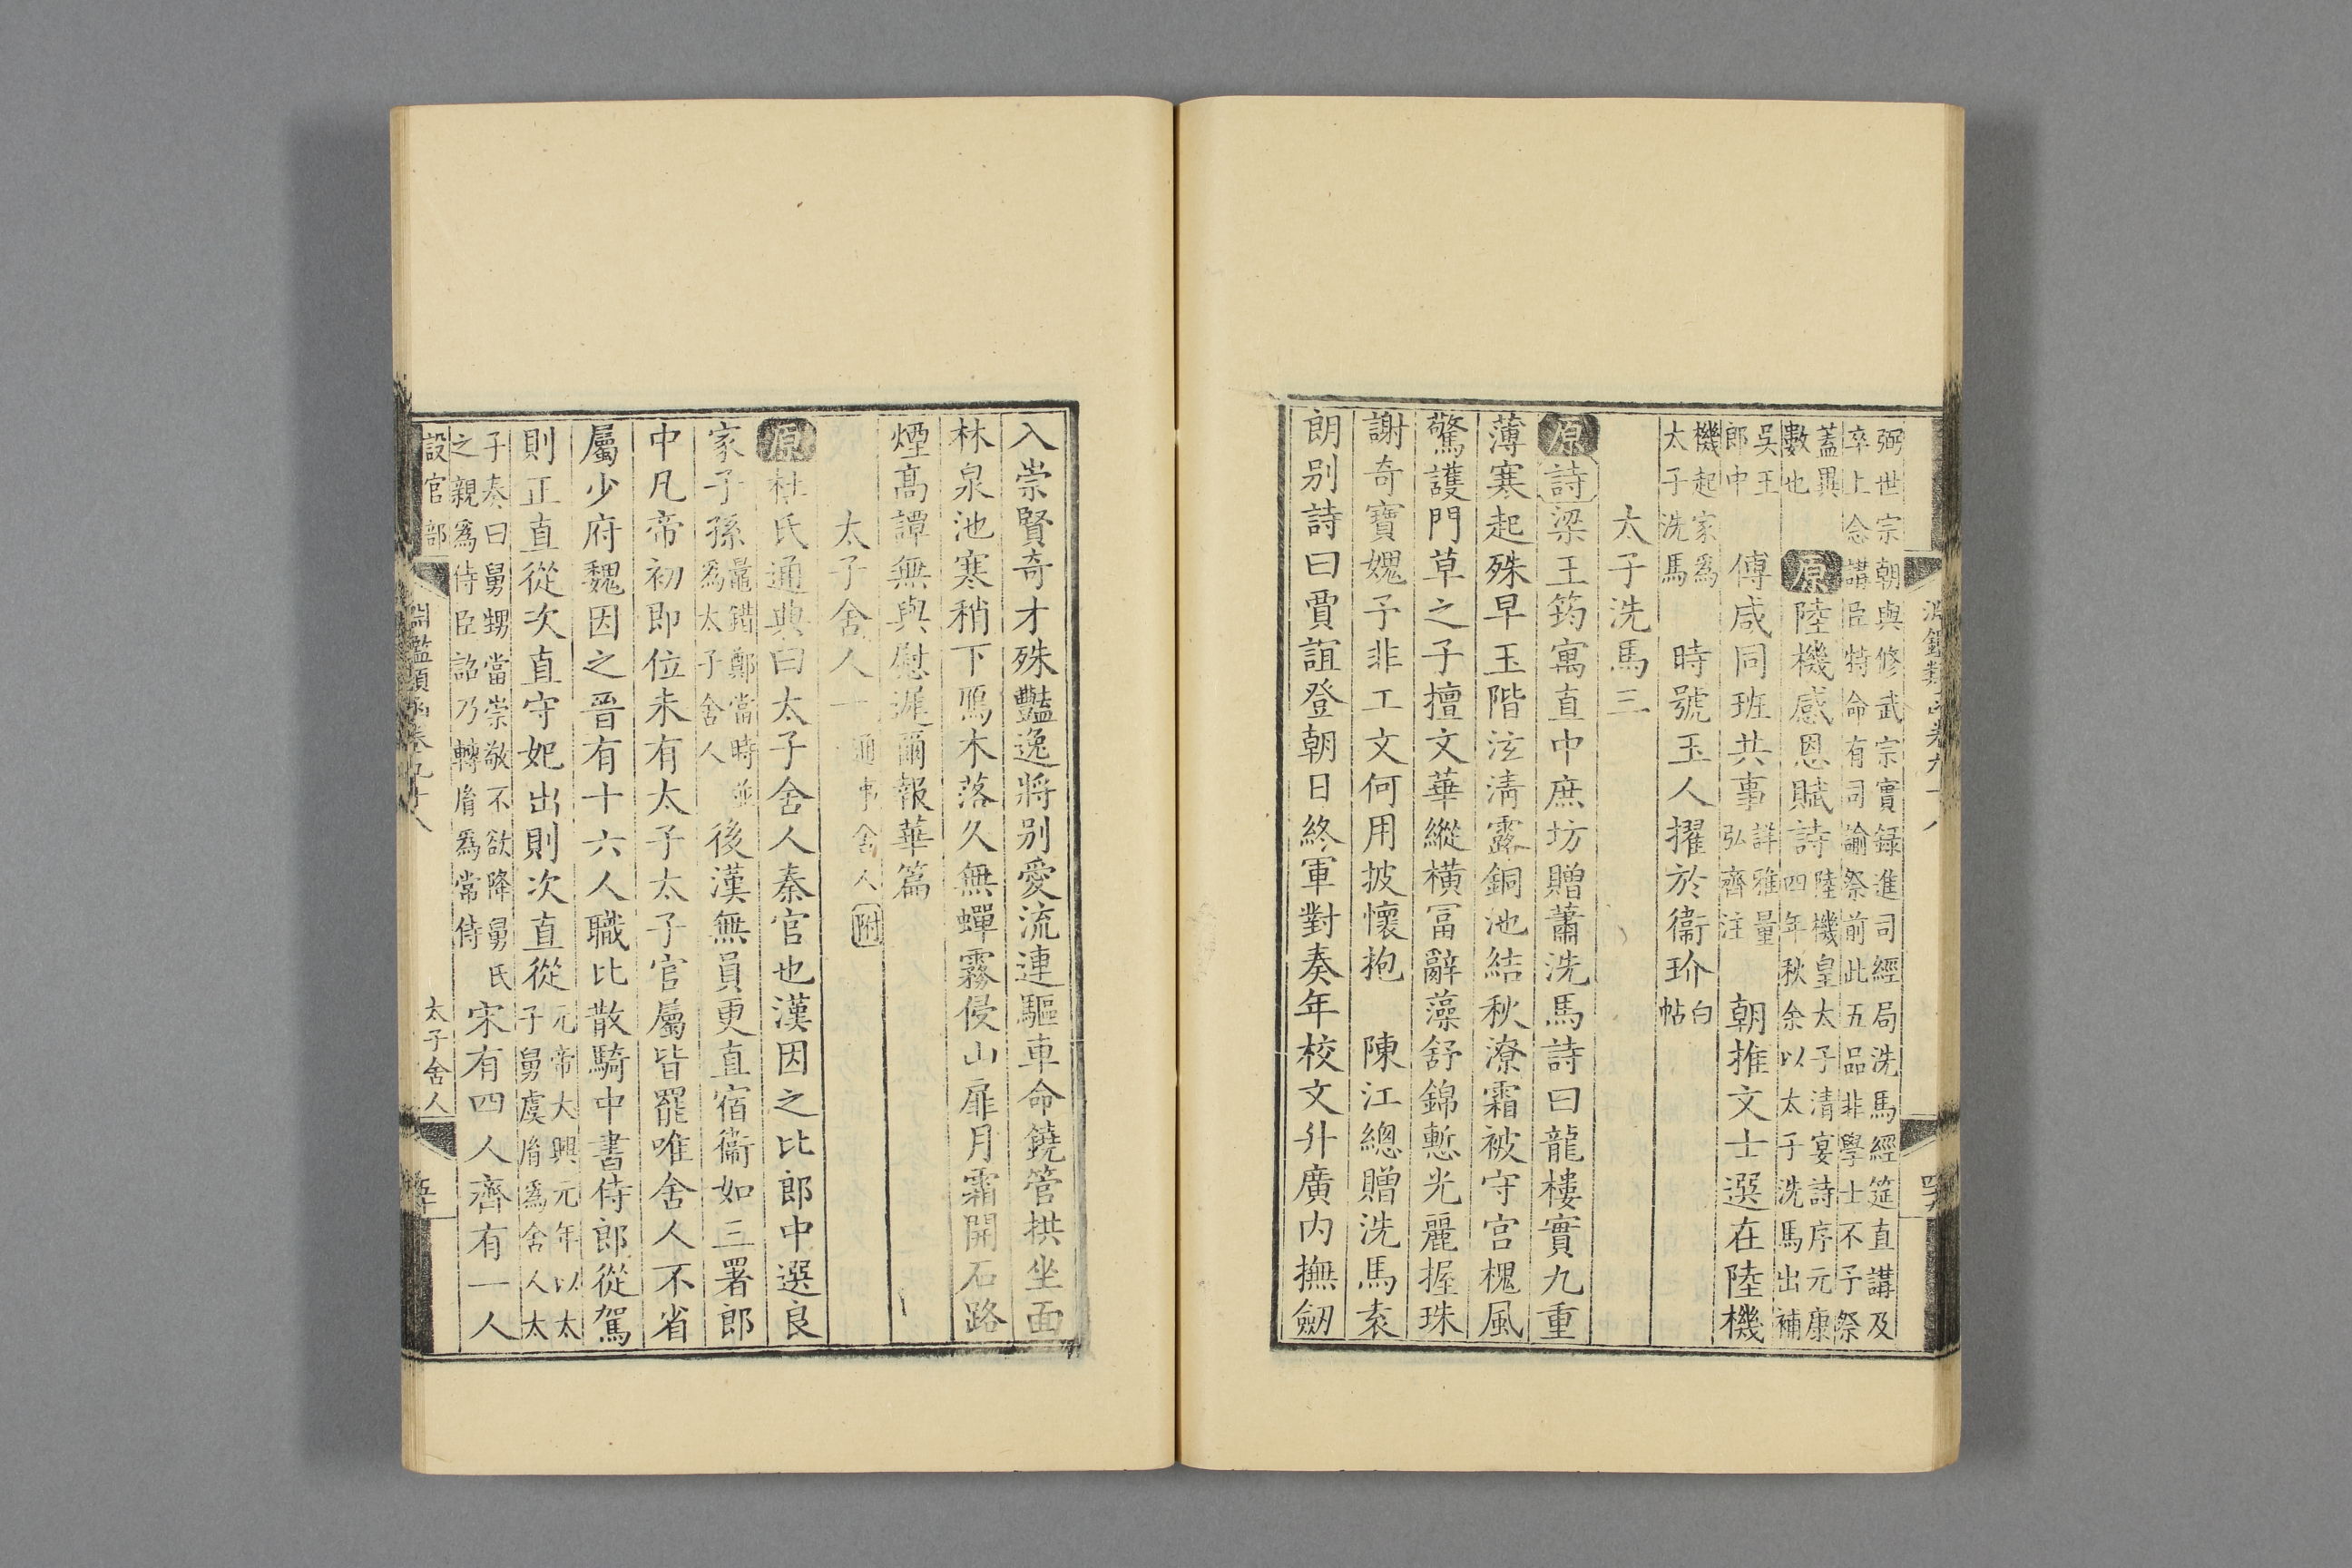 弼世宗朝與修武宗實録進司經局洗馬經筵直講及
卒上念講臣特命有司諭祭前此五品非學士不予祭
蓋異
數也
原陸機感恩賦詩
陸機皇太子清宴詩序元康
四年秋余以太子洗馬出補
吳王
郎中
傅咸同班共事
詳雅量
弘齊注
朝推文士選在陸機
機起家爲
太子洗馬
時號玉人擢於衞玠
白
帖
太子洗馬三
原詩梁王筠寓直中庶坊贈蕭洗馬詩曰龍樓實九重
薄寒起殊早玉階泫清露銅池結秋潦霜被守宮槐風
驚護門草之子擅文華縱橫冨辭藻舒錦慙光麗握珠
謝奇寶媿予非工文何用披懷抱　陳江總贈洗馬袁
朗别詩曰賈誼登朝日終軍對奏年校文升廣内撫劒
入崇賢奇才殊豔逸將别愛流連驅車命鐃管拱坐面
林泉池寒稍下鴈木落久無蟬霧侵山扉月霜開石路
煙高譚無與慰遲爾報華篇
太子舍人一通事舍人附
原杜氏通典曰太子舍人秦官也漢因之比郎中選良
家子孫
鼂錯鄭當時並
爲太子舍人
後漢無員更直宿衞如三署郎
中凡帝初即位未有太子太子官屬皆罷唯舍人不省
屬少府魏因之晉有十六人職比散騎中書侍郎從駕
則正直從次直守妃出則次直從
元帝大興元年以太
子舅虞胤爲舍人太
子奏曰舅甥當崇敬不欲降舅氏
之親爲侍臣詔乃轉胤爲常侍
宋有四人齊有一人
設官部
淵鑑類函卷九十八
太子舍人